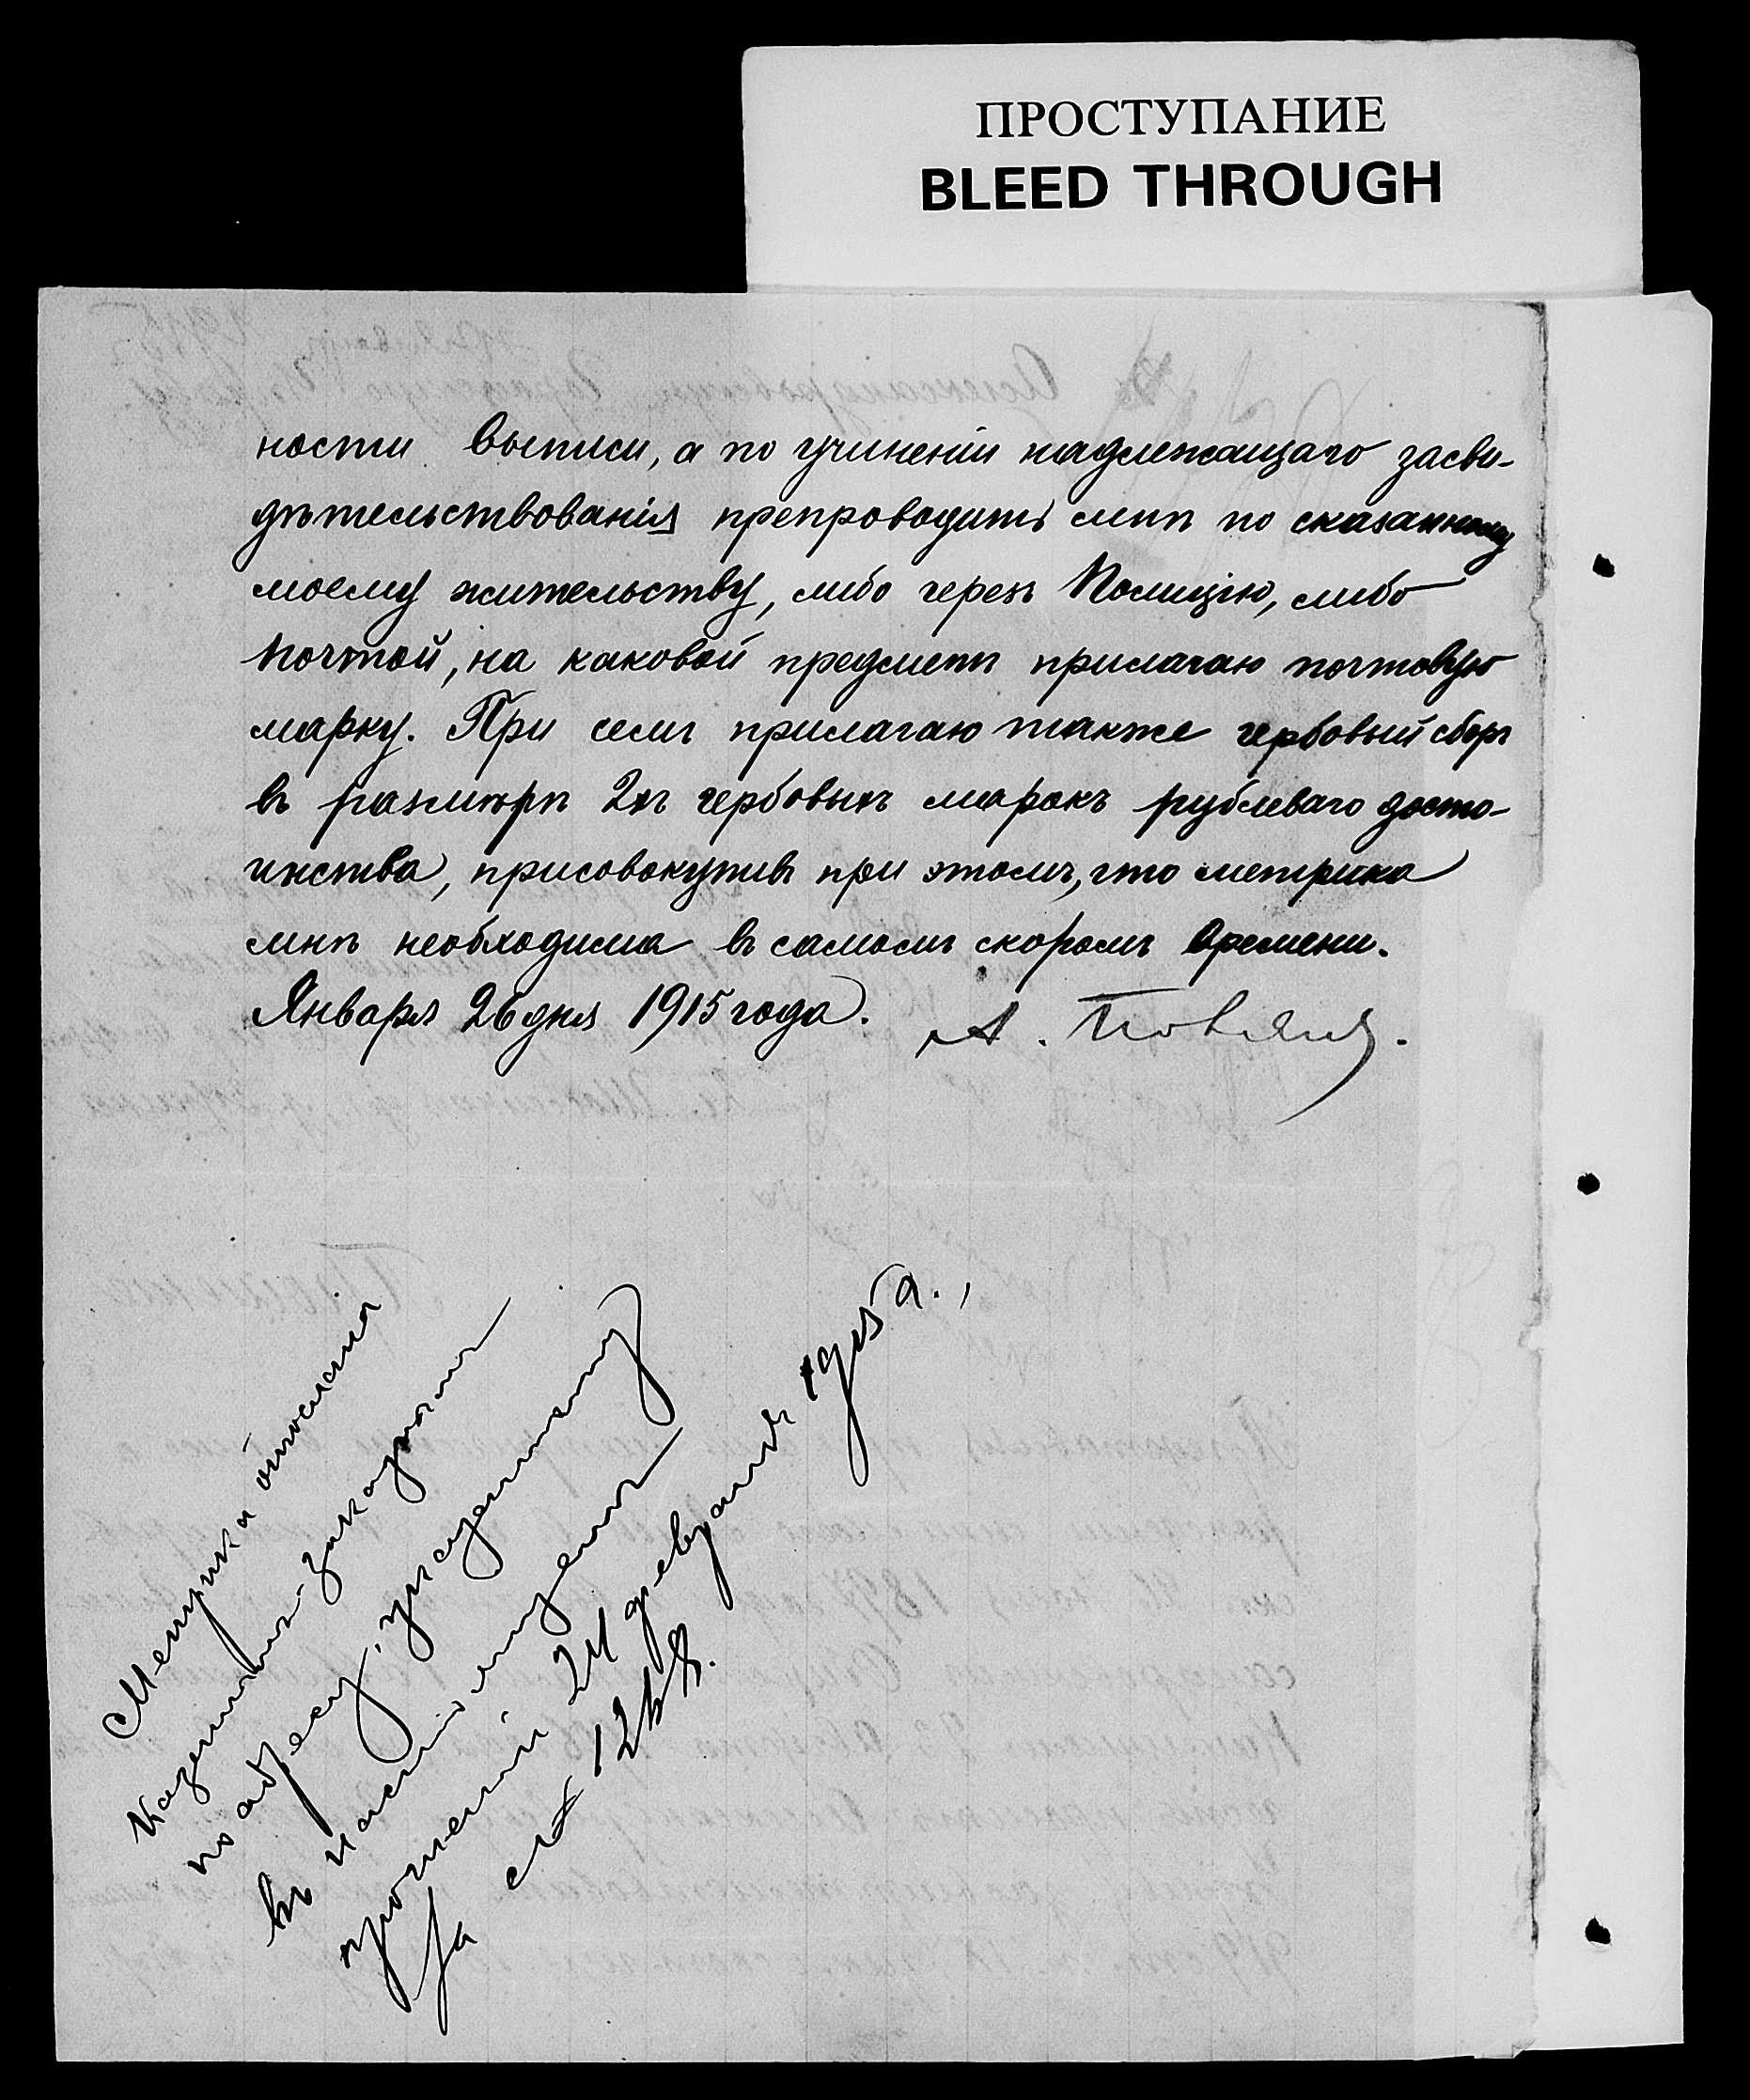 ПРОСТУПАНИЕ
BLEED THROUGH
ности выписи, а по учиненіи надлежащаго засви-
дѣтельствованія препроводить мнѣ по сказанному
моему жительству, либо черезъ Полицію, либо
почтой, на каковой предметъ прилагаю почтовую
марку. При семъ прилагаю также гербовый сборъ
въ размѣрѣ 2хъ гербовыхъ марокъ рублеваго досто-
инства, присовокупивъ при этомъ, что метрика
мнѣ необходима въ самомъ скоромъ времени.
Января 26 дня 1915 года. А.
Метрика отослана
казеннымъ-заказнымъ
по адресу, указанному
въ настоящемъ
прошеніи 24 февраля 1915 г.,
за № 1268.